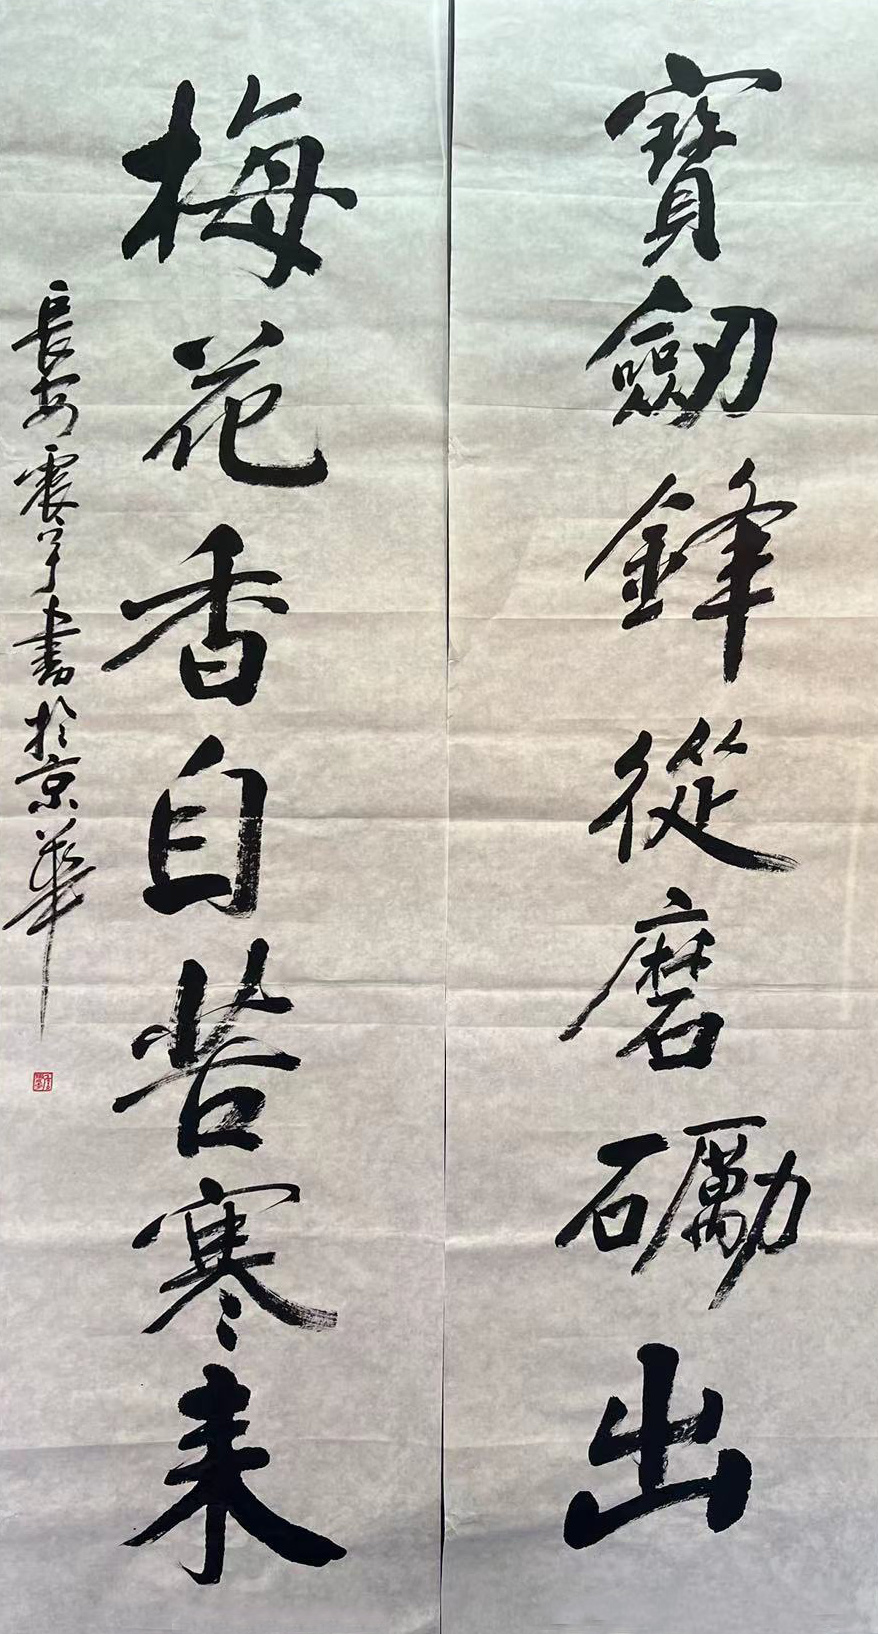 寶劒鋒從磨礪出
梅花香自苦寒来
長安震宇書於京華